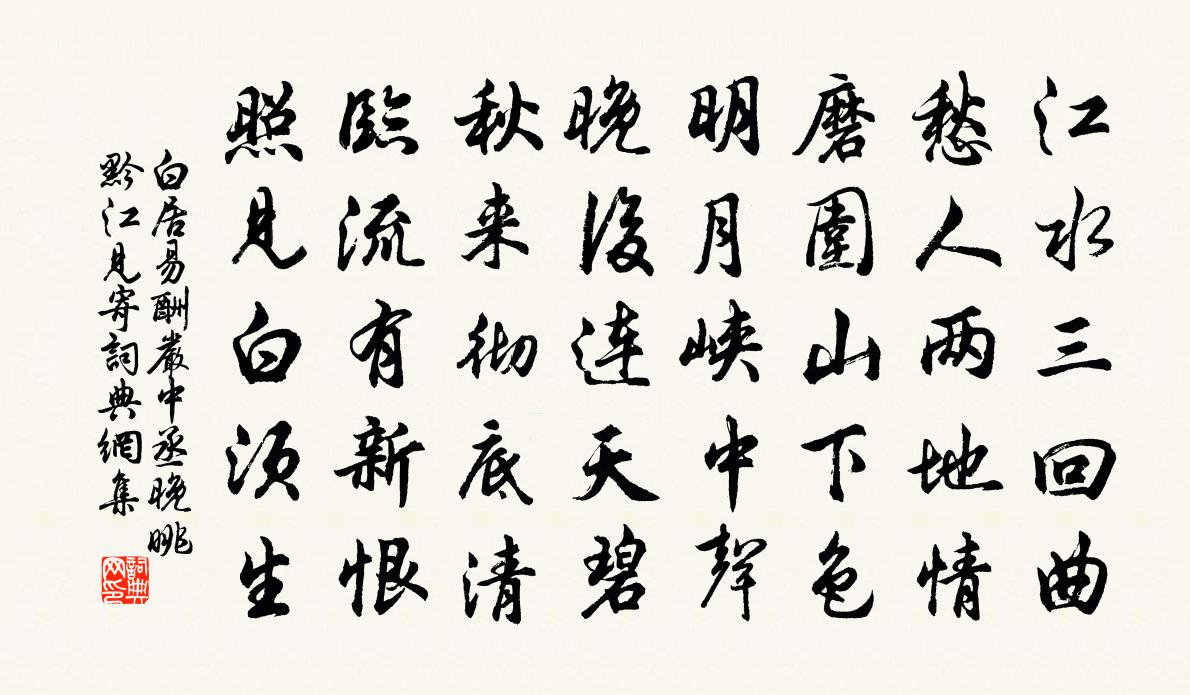 江水三回曲
愁人两地情
磨圍山下色
明月峡中聲
晚後连天碧
秋来彻底清
臨流有新恨
照見白须生
白居易酬嚴中丞晚眺
黔江見寄詞典網集
詞典
网印